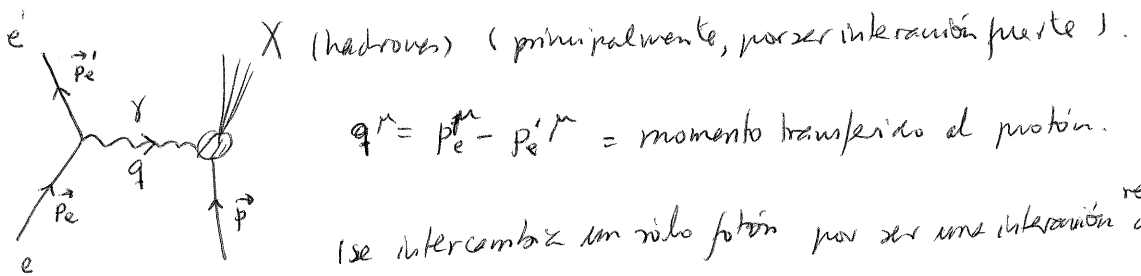 e' X (hadrones) (principalmente, por ser interacción fuerte).
p⃗e'
γ
q^μ = p_e^μ - p_e'^μ = momento transferido al protón.
q
p⃗e p⃗
(se intercambia un sólo fotón por ser una interacción
e